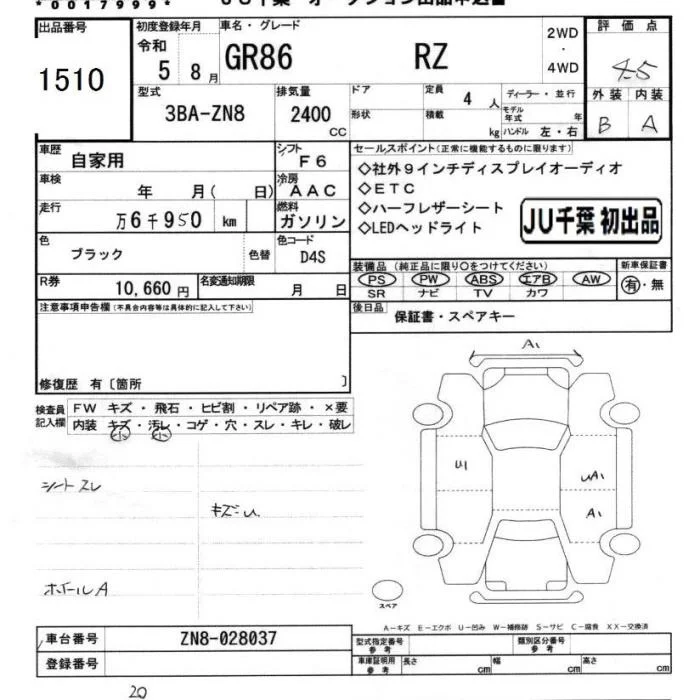 *0017999*
JU千葉 オークション出品申込書
出品番号
1510
初度登録年月
令和
5 8月
車名・グレード
GR86 RZ
2WD
・
4WD
評価点
4-5
外装 内装
B A
型式
3BA-ZN8
排気量
2400
CC
ドア
形状
定員 4 人
積載 kg
ディーラー・並行
モデル年式 年
ハンドル 左・右
車歴
自家用
シフト
F6
車検
年 月( 日)
冷房
AAC
走行
万6千950 km
燃料
ガソリン
色
ブラック
色替
色コード
D4S
R券
10,660円
名変通知期限
月 日
セールスポイント(正常に機能するものに限ります)
◇社外9インチディスプレイオーディオ
◇ETC
◇ハーフレザーシート
◇LEDヘッドライト
JU千葉 初出品
装備品(純正品に限り○をつけてください)
PS PW ABS エアB AW
SR ナビ TV カワ
新車保証書
有・無
後日品
保証書・スペアキー
注意事項申告欄(不具合内容等は具体的に記入して下さい)
修復歴 有〔箇所 〕
検査員
記入欄
FW キズ・飛石・ヒビ割・リペア跡・×要
内装 キズ・汚レ・コゲ・穴・スレ・キレ・破レ
小 小
シートスレ
キズU
ホイールA
A1
U1
UA1
A1
スペア
A−キズ E−エクボ U−凹み W−補修跡 S−サビ C−腐食 XX−交換済
車台番号
ZN8-028037
登録番号
型式指定番号
参考
類別区分番号
参考
車庫証明用
参考
長さ cm
幅 cm
高さ cm
20